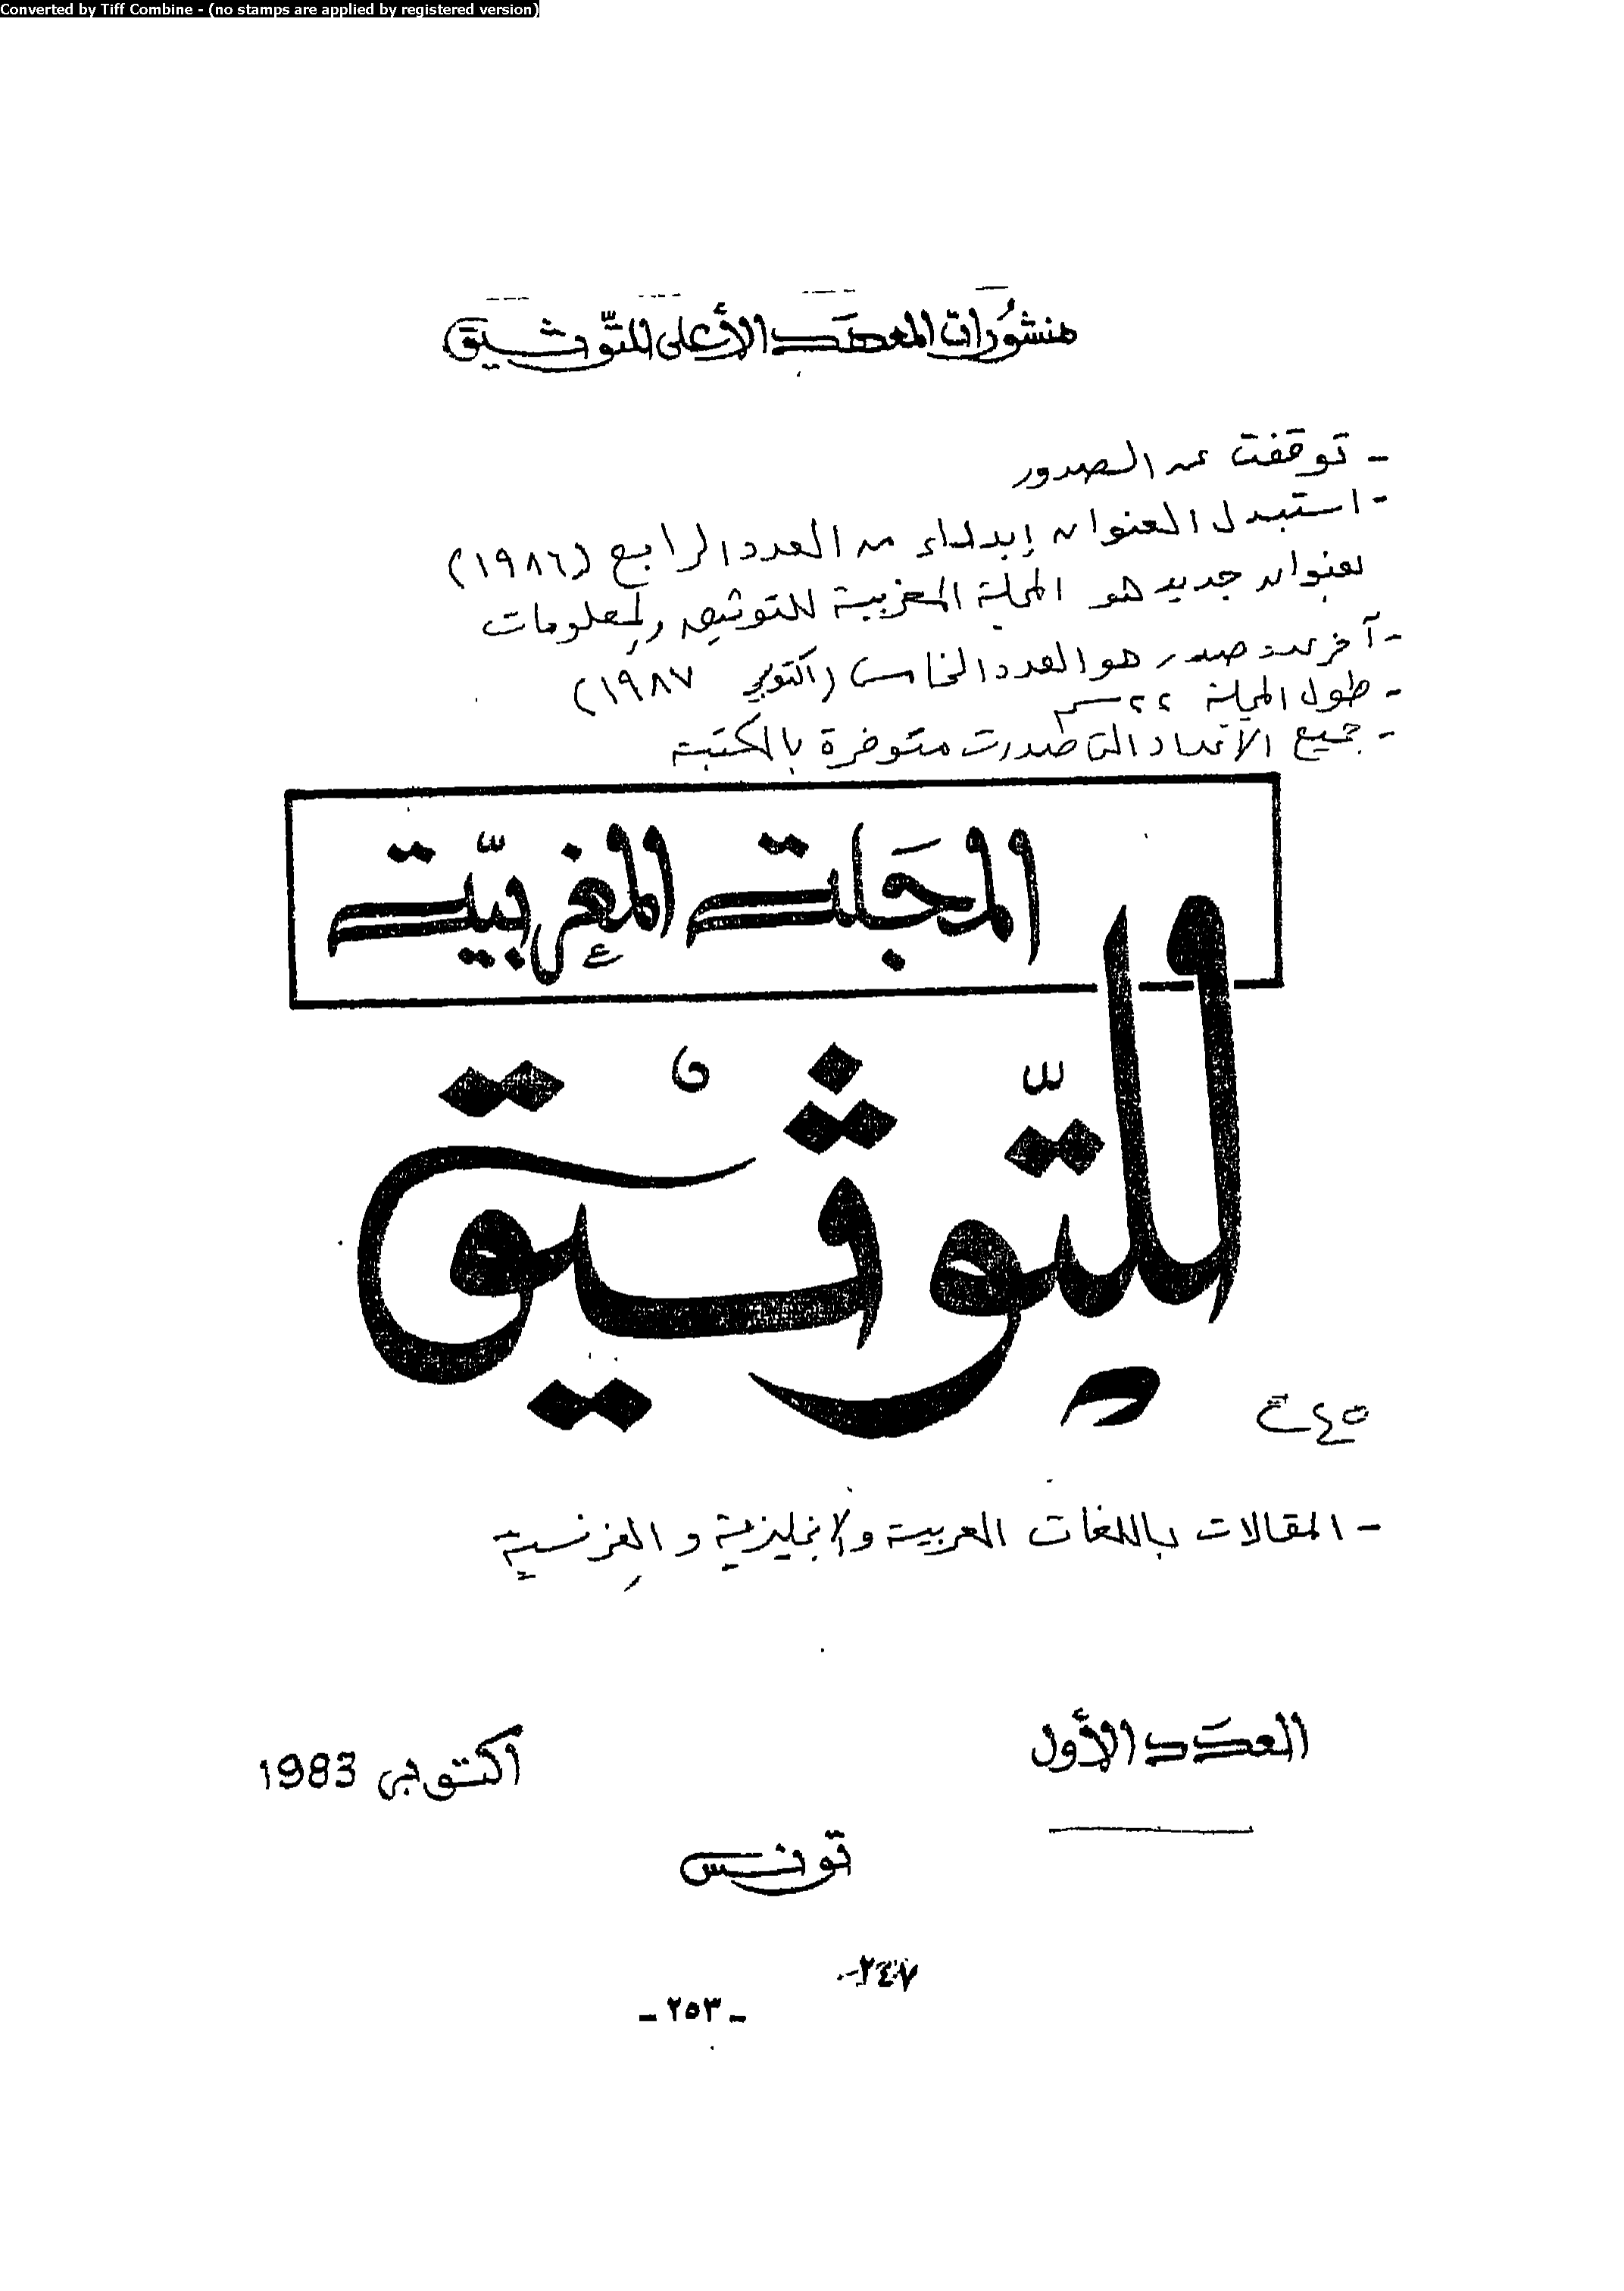 Converted by Tiff Combine - (no stamps are applied by registered version)
منشورات المعهد الأعلى للتوثيق
- توقفت عن الصدور
- استبدل العنوان إبتداء من العدد الرابع (١٩٨٦)
بعنوان جديد هو المجلة المغربية للتوثيق والمعلومات
- آخر عدد صدر هو العدد الخامس (اكتوبر ١٩٨٧)
- طول المجلة ٢٢ سم
- جميع الأعداد التى صدرت متوفرة بالمكتبة
المجَلة المغربيّة
للتّوثيق
- المقالات باللغات العربية والإنجليزية والفرنسية
العدَد الأول
أكتوبر 1983
تونس
٢٤٧-
- ٢٥٣ -